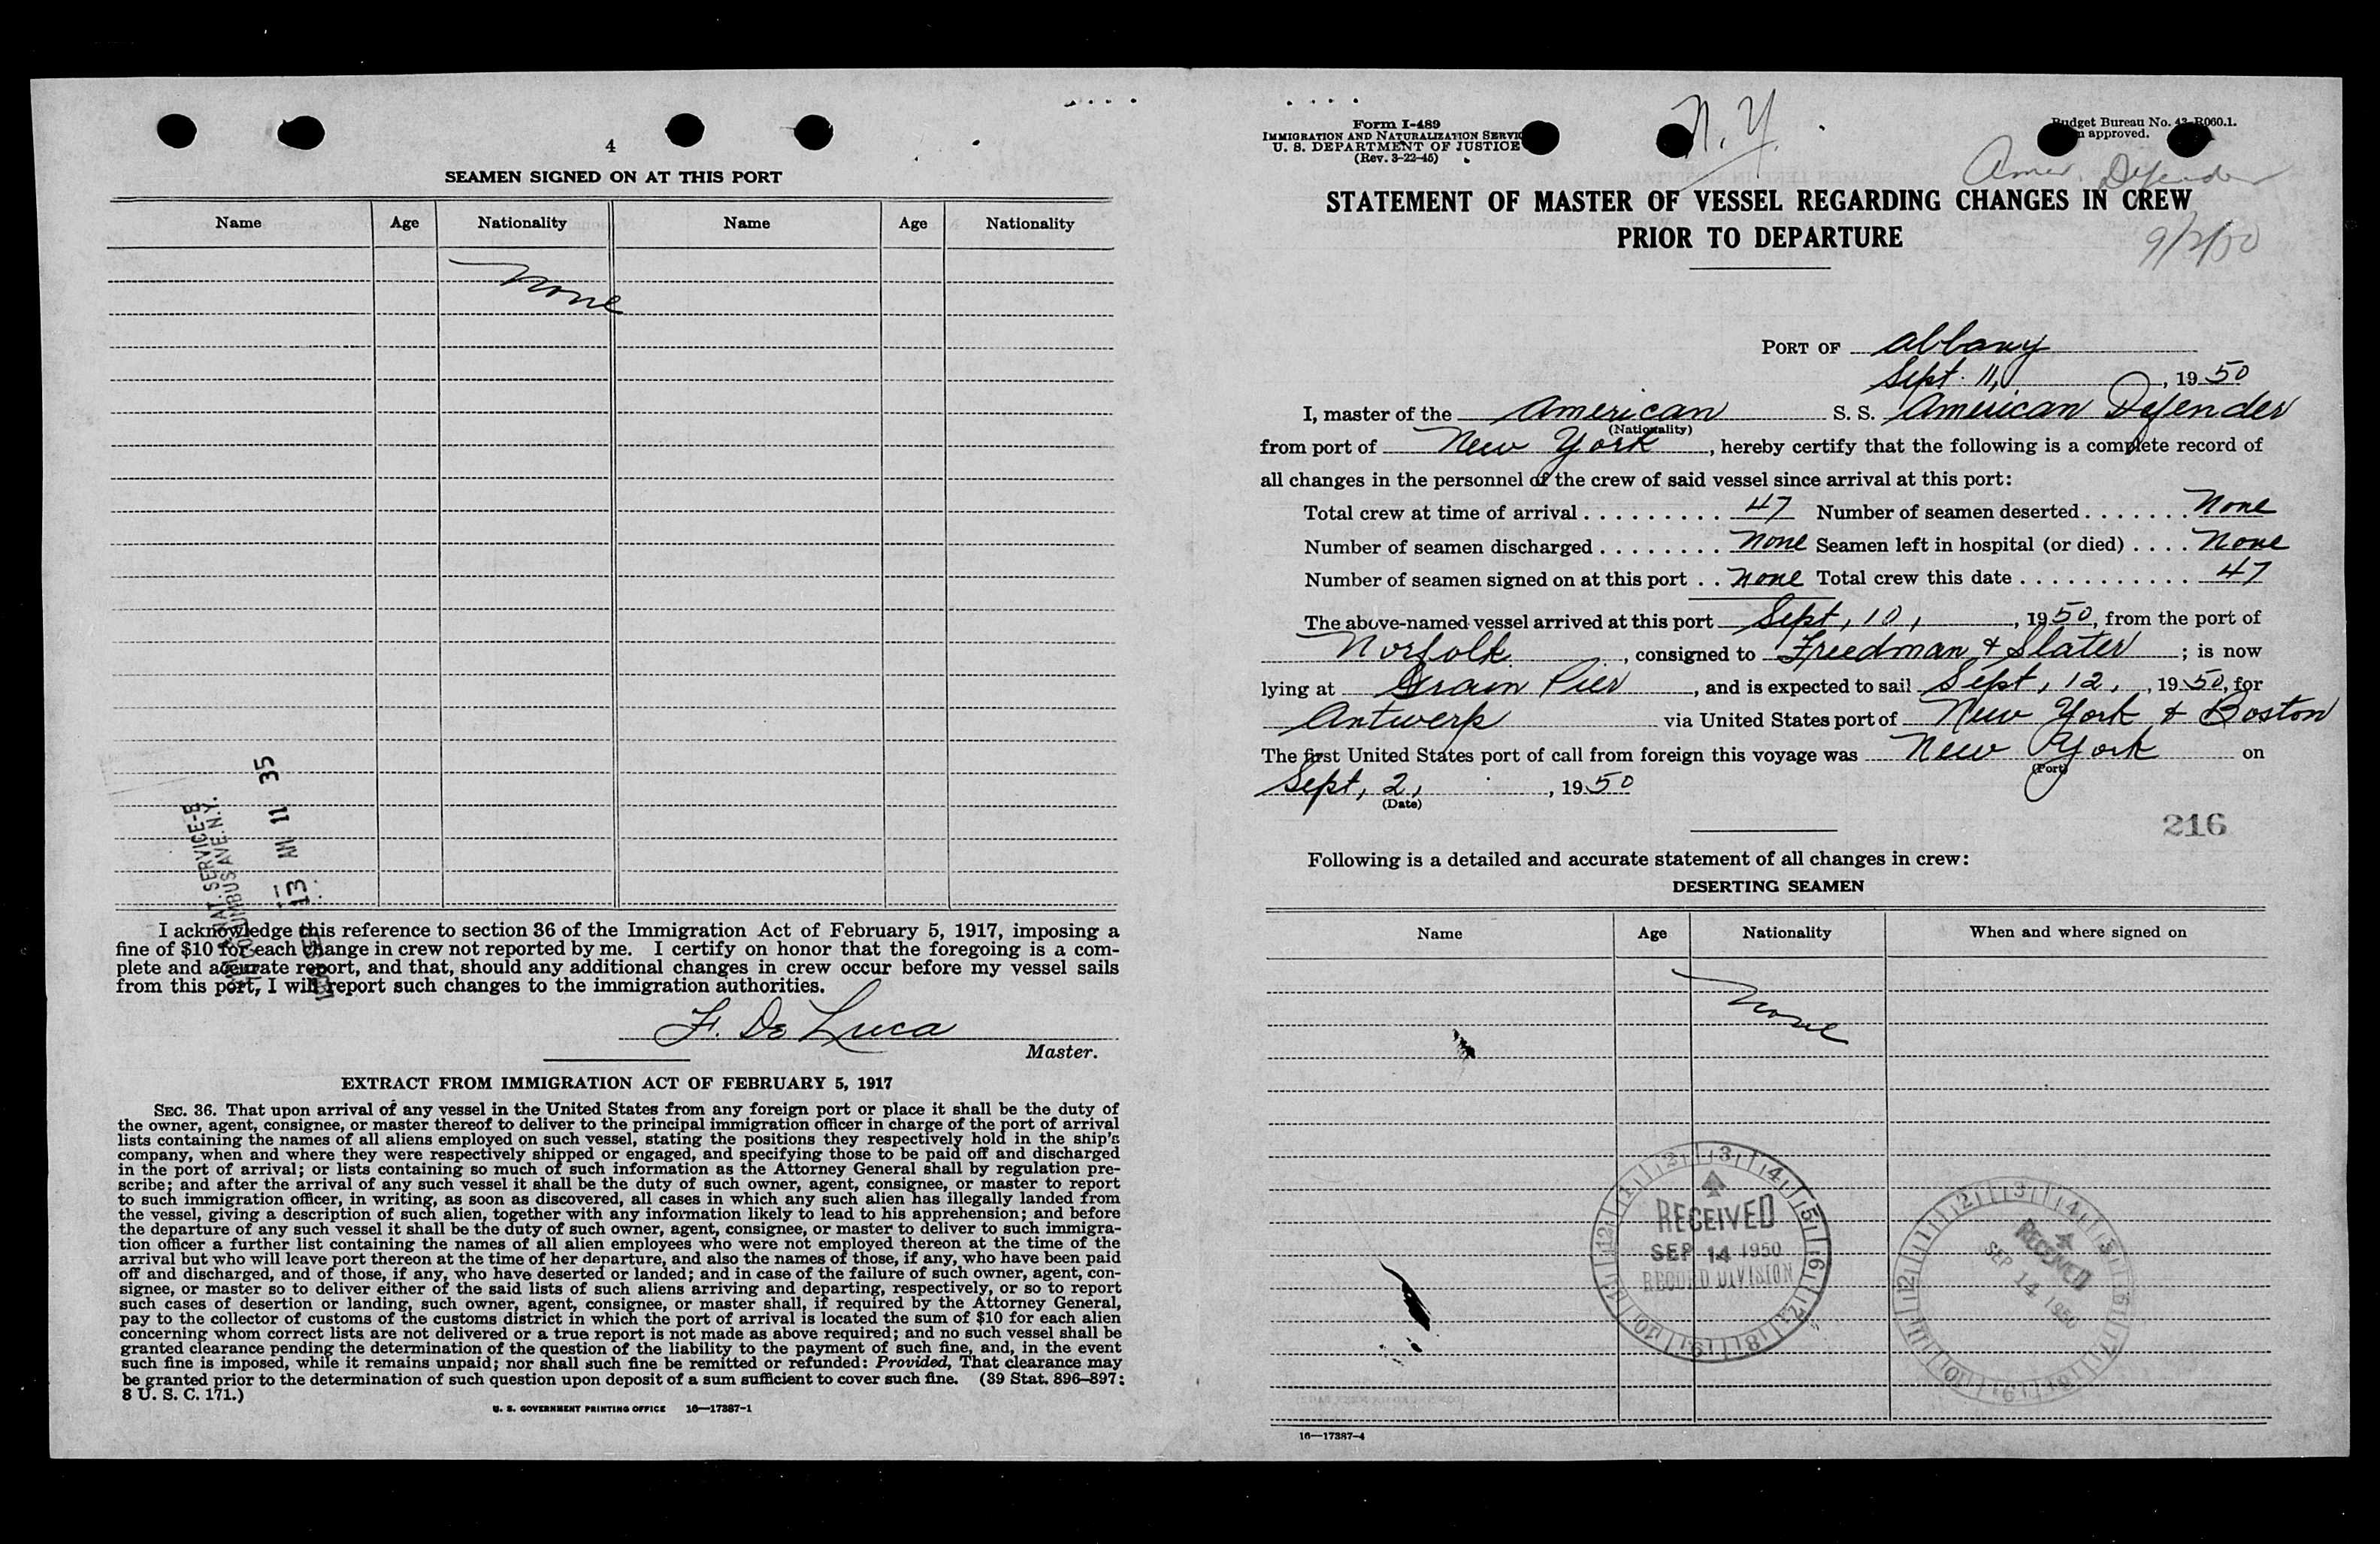 4
SEAMEN SIGNED ON AT THIS PORT
Name Age Nationality Name Age Nationality
None
SERVICE-E
COLUMBUS AVE. N.Y.
13 AM 11 35
I acknowledge this reference to section 36 of the Immigration Act of February 5, 1917, imposing a
fine of $10 for each change in crew not reported by me. I certify on honor that the foregoing is a com-
plete and accurate report, and that, should any additional changes in crew occur before my vessel sails
from this port, I will report such changes to the immigration authorities.
F. De Luca
Master.
EXTRACT FROM IMMIGRATION ACT OF FEBRUARY 5, 1917
SEC. 36. That upon arrival of any vessel in the United States from any foreign port or place it shall be the duty of
the owner, agent, consignee, or master thereof to deliver to the principal immigration officer in charge of the port of arrival
lists containing the names of all aliens employed on such vessel, stating the positions they respectively hold in the ship's
company, when and where they were respectively shipped or engaged, and specifying those to be paid off and discharged
in the port of arrival; or lists containing so much of such information as the Attorney General shall by regulation pre-
scribe; and after the arrival of any such vessel it shall be the duty of such owner, agent, consignee, or master to report
to such immigration officer, in writing, as soon as discovered, all cases in which any such alien has illegally landed from
the vessel, giving a description of such alien, together with any information likely to lead to his apprehension; and before
the departure of any such vessel it shall be the duty of such owner, agent, consignee, or master to deliver to such immigra-
tion officer a further list containing the names of all alien employees who were not employed thereon at the time of the
arrival but who will leave port thereon at the time of her departure, and also the names of those, if any, who have been paid
off and discharged, and of those, if any, who have deserted or landed; and in case of the failure of such owner, agent, con-
signee, or master so to deliver either of the said lists of such aliens arriving and departing, respectively, or so to report
such cases of desertion or landing, such owner, agent, consignee, or master shall, if required by the Attorney General,
pay to the collector of customs of the customs district in which the port of arrival is located the sum of $10 for each alien
concerning whom correct lists are not delivered or a true report is not made as above required; and no such vessel shall be
granted clearance pending the determination of the question of the liability to the payment of such fine, and, in the event
such fine is imposed, while it remains unpaid; nor shall such fine be remitted or refunded: Provided, That clearance may
be granted prior to the determination of such question upon deposit of a sum sufficient to cover such fine. (39 Stat. 896-897;
8 U. S. C. 171.)
U. S. GOVERNMENT PRINTING OFFICE 16—17387-1
Form I-489
IMMIGRATION AND NATURALIZATION SERVIC
U. S. DEPARTMENT OF JUSTICE
(Rev. 3-22-45)
N.Y.
Budget Bureau No. 43-R060.1.
approved.
Amer. Defender
9/2/50
STATEMENT OF MASTER OF VESSEL REGARDING CHANGES IN CREW
PRIOR TO DEPARTURE
PORT OF Albany
Sept. 11, , 19 50
I, master of the American S. S. American Defender
(Nationality)
from port of New York , hereby certify that the following is a complete record of
all changes in the personnel of the crew of said vessel since arrival at this port:
Total crew at time of arrival . . . . . . . . . . 47 Number of seamen deserted . . . . . . . None
Number of seamen discharged . . . . . . . . None Seamen left in hospital (or died) . . . . None
Number of seamen signed on at this port . . None Total crew this date . . . . . . . . . . . . 47
The above-named vessel arrived at this port Sept, 10, , 19 50, from the port of
Norfolk , consigned to Freedman & Slater ; is now
lying at Grain Pier , and is expected to sail Sept, 12, , 19 50, for
Antwerp via United States port of New York & Boston
The first United States port of call from foreign this voyage was New York on
(Port)
Sept, 2, , 19 50
(Date)
216
Following is a detailed and accurate statement of all changes in crew:
DESERTING SEAMEN
Name Age Nationality When and where signed on
None
RECEIVED
SEP 14 1950
RECORD DIVISION
RECEIVED
SEP 14 1950
16—17387-4